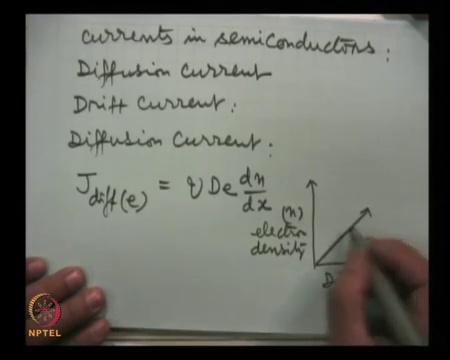 currents in semiconductors:
Diffusion current
Drift current:
Diffusion current:
J diff(e) = q De dn/dx
(n)
electron
density
D
NPTEL